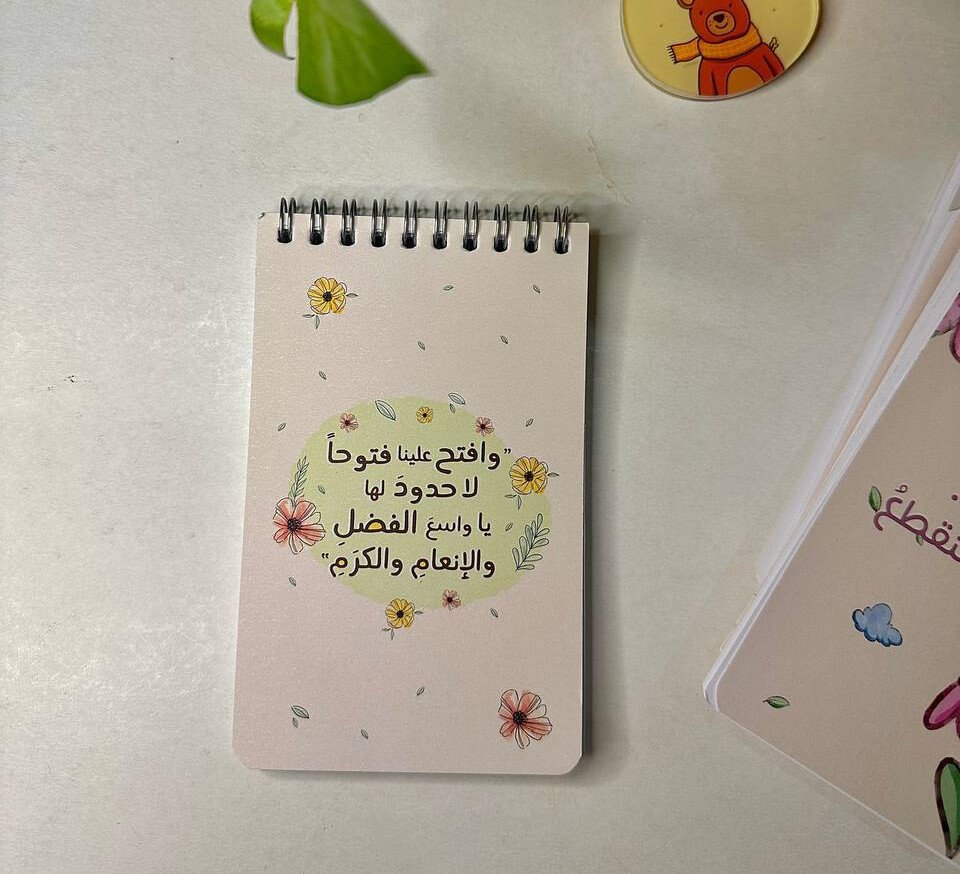 ”وافتح علينا فتوحاً
لا حدودَ لها
يا واسعَ الفضلِ
والإنعامِ والكرَمِ“